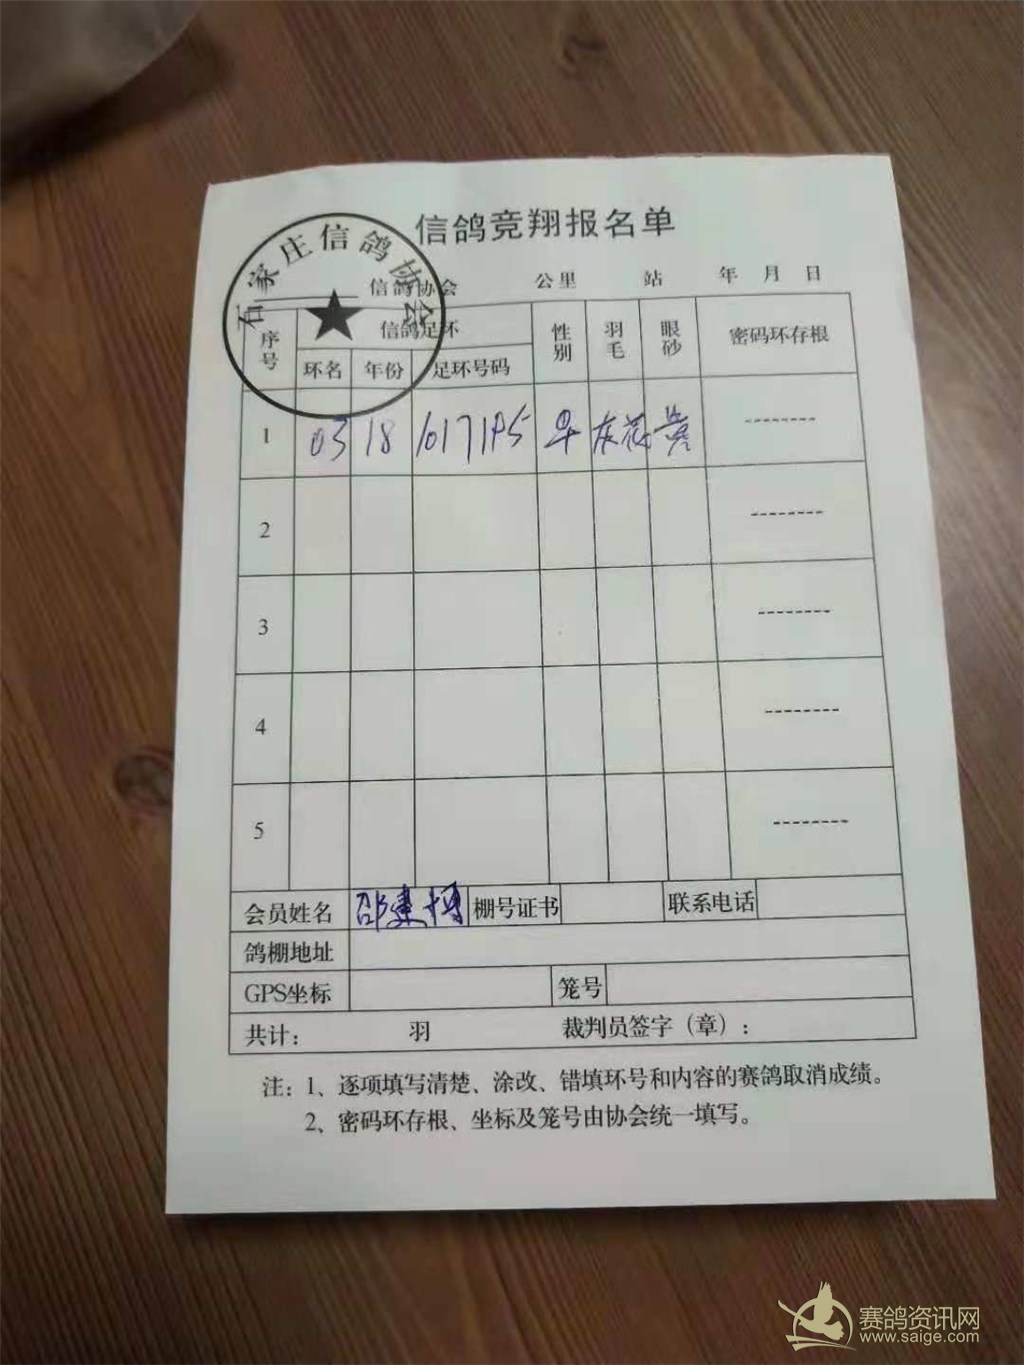 信鸽竞翔报名单
石家庄信鸽协会
信鸽协会 公里 站 年 月 日
序号 信鸽足环 性别 羽毛 眼砂 密码环存根
环名 年份 足环号码
1 03 18 灰花 黄 --------
2 --------
3 --------
4 --------
5 --------
会员姓名 邵建博 棚号证书 联系电话
鸽棚地址
GPS坐标 笼号
共计: 羽 裁判员签字（章）:
注: 1、逐项填写清楚、涂改、错填环号和内容的赛鸽取消成绩。
2、密码环存根、坐标及笼号由协会统一填写。
赛鸽资讯网
www.saige.com